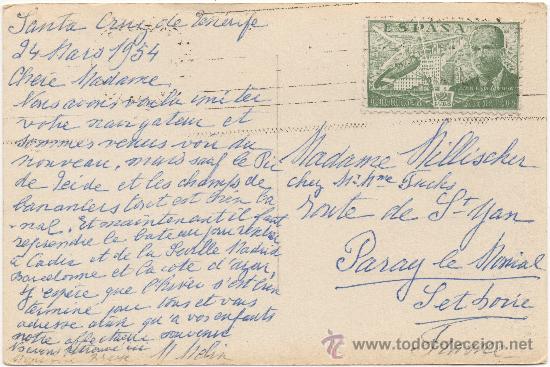 Santa Cruz de Tenerife
24 Mars 1954
Chère Madame
Nous avons voulu imiter
votre navigateur et
sommes venus voir du
nouveau, mais sauf le Pic
de Teide et les champs de
bananiers tout est bien ba
nal. Et maintenant il faut
reprendre le bateau pour rentrer
à Cadix et de là Séville Madrid
Barcelonne et la côte d'Azur.
J'espère que l'hiver s'est bien
terminé pour tous et vous
adresse ainsi qu'à vos enfants
notre affectueux souvenir
M. Melin
ESPAÑA
Madame Villischer
chez Mr Mme Fuchs
Route de St Yan
Paray le Monial
Set Loire
France
todocoleccion